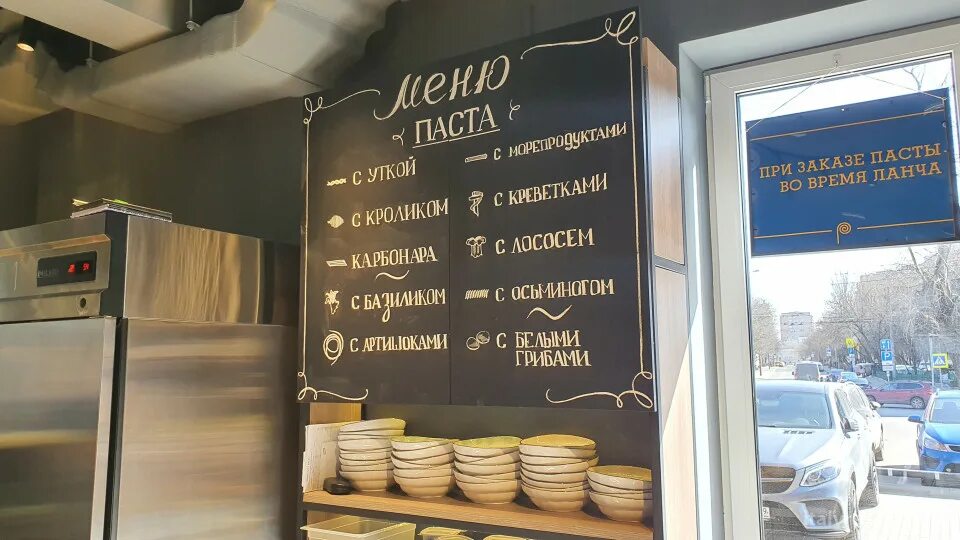 Меню
ПАСТА
С УТКОЙ
С КРОЛИКОМ
КАРБОНАРА
С БАЗИЛИКОМ
С АРТИШОКАМИ
С МОРЕПРОДУКТАМИ
С КРЕВЕТКАМИ
С ЛОСОСЕМ
С ОСЬМИНОГОМ
С БЕЛЫМИ
ГРИБАМИ
ПРИ ЗАКАЗЕ ПАСТЫ
ВО ВРЕМЯ ЛАНЧА